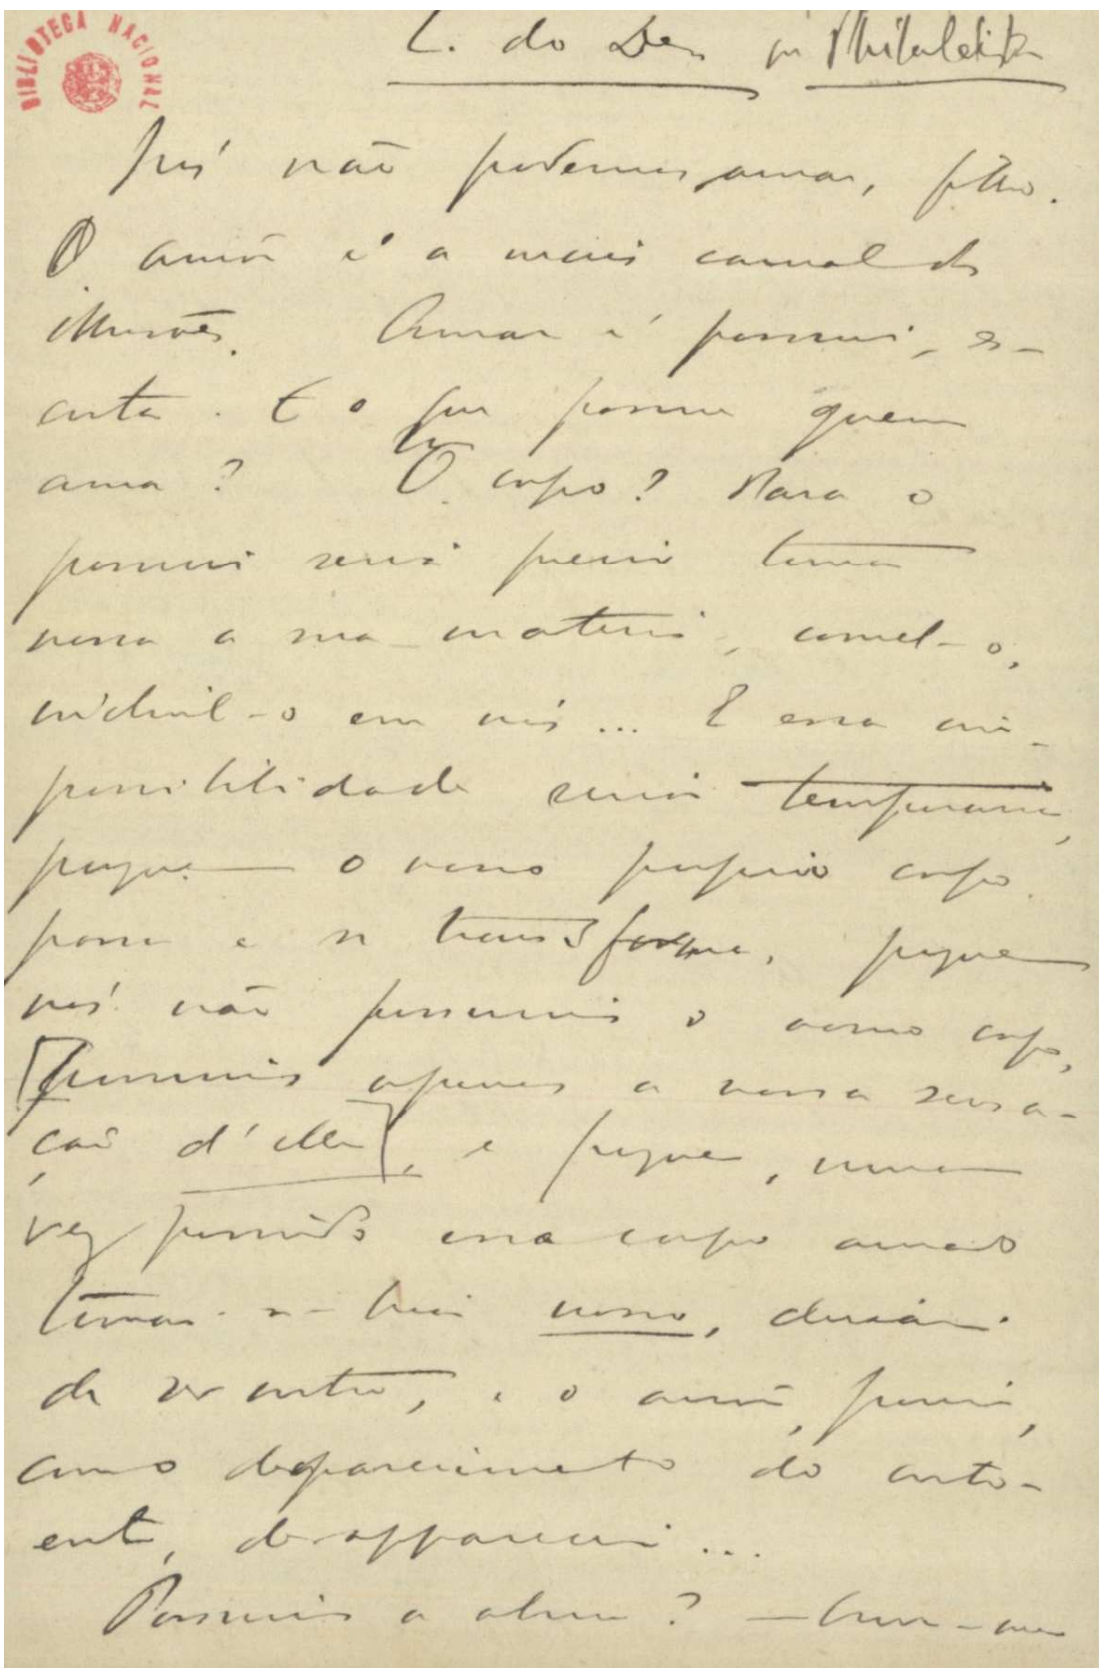 BIBLIOTECA NACIONAL
L. do Des. ou Philatelista
Nós não podemos amar, filho.
O amor é a mais carnal das
illusões. Amar é possuir, es-
cuta. E o que possue quem
ama? O corpo? Para o
possuir seria preciso tornar
nossa a sua materia, comel-o,
incluil-o em nós... E essa im-
possibilidade seria temporaria,
porque o nosso proprio corpo
passa e se transforma, porque
nós não possuimos o nosso corpo,
[possuimos apenas a nossa sensa-
ção d'elle], e porque, uma
vez possuido esse corpo amado
tornar-se-hia nosso, deixaria
de ser outro, e o amor, por isso,
com o desapparecimento do outro-
ente, desappareceria...
Possuimos a alma? — Ouve-me